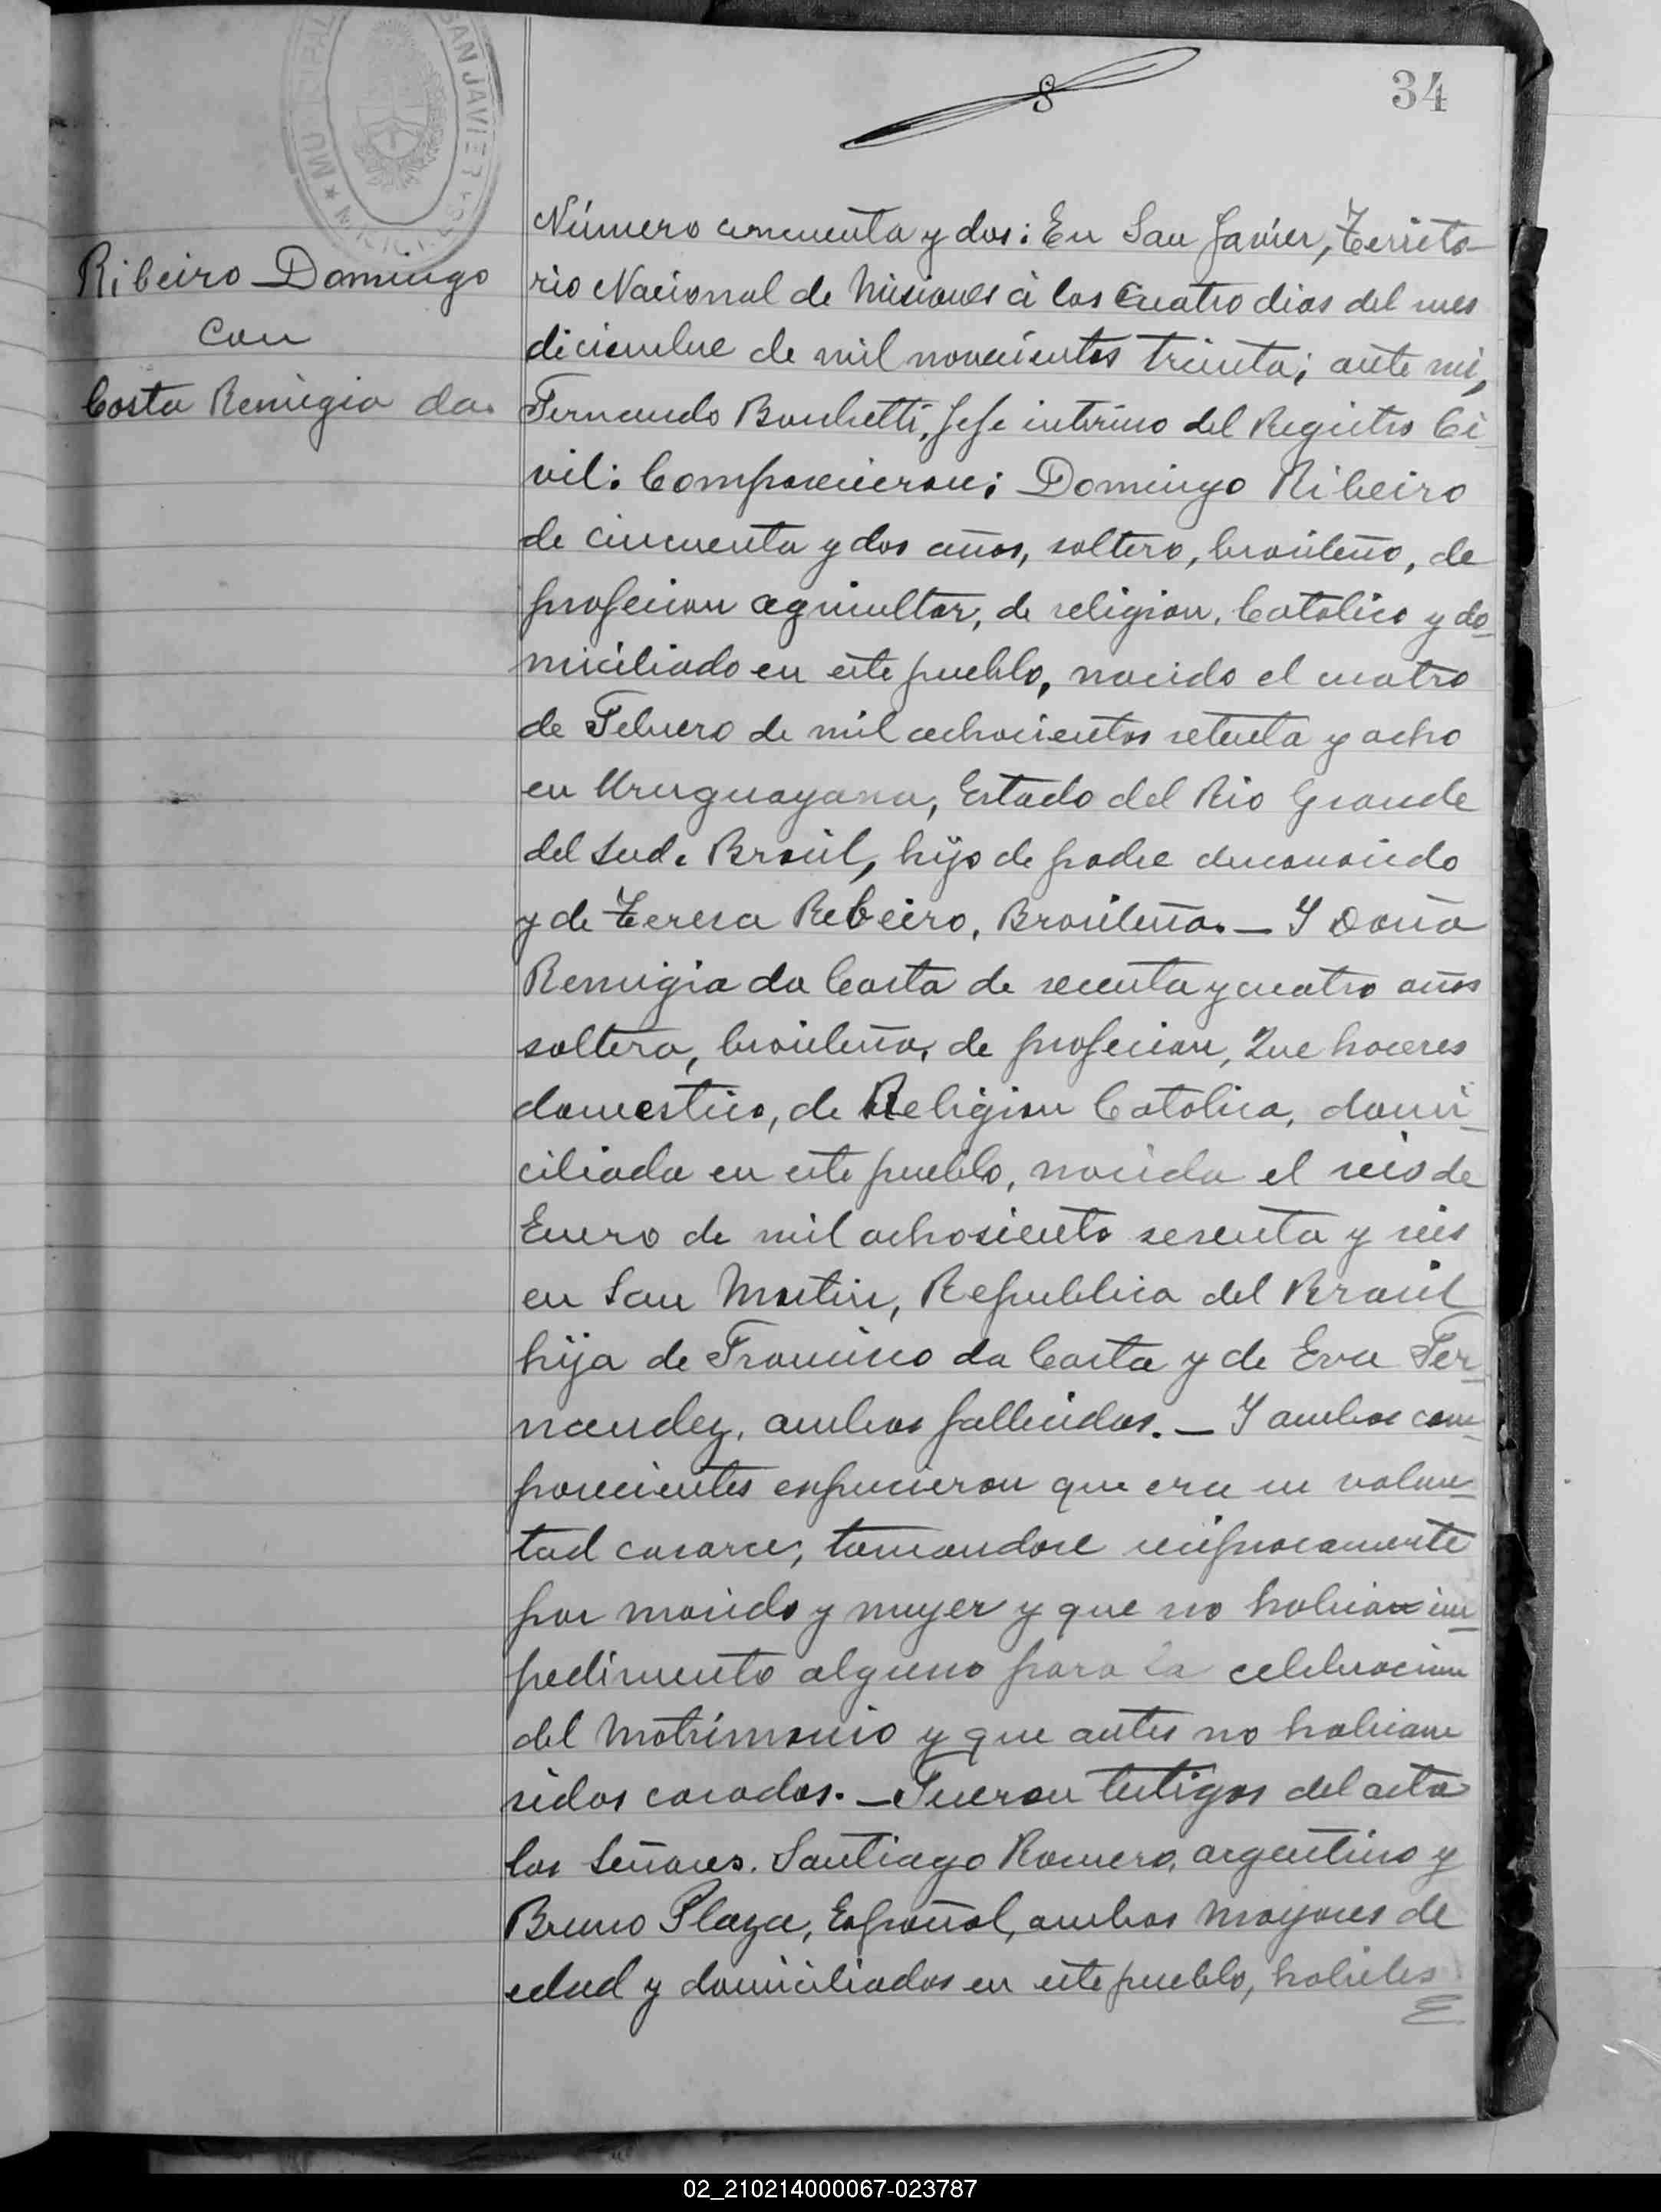 34
MUNICIPAL SAN JAVIER
Ribeiro Domingo
con
Costa Remigia da.
Número cincuenta y dos: En San Javier, Territo-
rio Nacional de Misiones á los Cuatro dias del mes
diciembre de mil novecientos treinta; ante mi,
Fernando Bonchetti, Jefe interino del Registro Ci-
vil: Comparecieron; Domingo Ribeiro
de cincuenta y dos años, soltero, brasileño, de
profecion agricultor, de religion, Catolico y do-
miciliado en este pueblo, nacido el cuatro
de Febrero de mil ochocientos setenta y ocho
en Uruguayana, Estado del Rio Grande
del Sud. Brasil, hijo de padre desconosido
y de Teresa Rebeiro, Brasileña. — Y Doña
Remigia da Costa de secenta y cuatro años
soltera, brasileña, de profecion, Que haceres
domestico, de Religion Catolica, domi-
ciliada en este pueblo, nacida el seis de
Enero de mil ochosiento sesenta y seis
en San Martin, Republica del Brasil
hija de Francisco da Costa y de Eva Fer-
nandez, ambos fallecidos. — Y ambos com-
parecientes expucieron que era su volun-
tad casarce; tomandose reciprocamente
por marido y mujer y que no habia im-
pedimento alguno para la celebracion
del Matrimonio y que antes no habian
sidos casados. — Fueron testigos del acto
los Señores. Santiago Romero, argentino y
Bruno Plaza, Español, ambos mayores de
edad y domiciliados en este pueblo, habiles
02_210214000067-023787